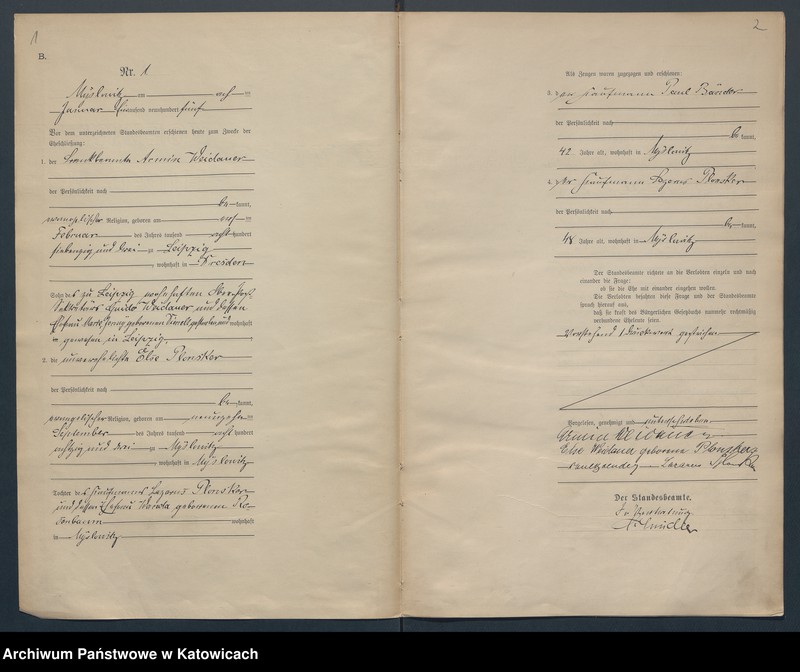 1
B.
Nr. 1
Myslowitz am acht
Januar tausend neunhundert fünf
Vor dem unterzeichneten Standesbeamten erschienen heute zum Zwecke der
Eheschließung:
1. der Bankbeamte Armin Weidauer
der Persönlichkeit nach
be kannt,
evangelischer Religion, geboren am acht
Februar des Jahres tausend acht hundert
siebenzig und drei zu Leipzig
, wohnhaft in Dresden
Sohn des zu Leipzig wohnhaften
Sekretärs Guido Weidauer und dessen
Ehefrau geborenen wohnhaft
gewesen in Leipzig
2. die unverehelichte Else Plonsker
der Persönlichkeit nach
be kannt,
evangelischer Religion, geboren am neunzehn
September des Jahres tausend acht hundert
achtzig und drei zu Myslowitz
, wohnhaft in Myslowitz
Tochter des Kaufmanns Lazarus Plonsker
und dessen Ehefrau geborenen Ro-
senbaum wohnhaft
in Myslowitz
2
Als Zeugen waren zugezogen und erschienen:
3. der Kaufmann Paul
der Persönlichkeit nach
be kannt,
42 Jahre alt, wohnhaft in Myslowitz
4. der Kaufmann Lazarus Plonsker
der Persönlichkeit nach
be kannt,
48 Jahre alt, wohnhaft in Myslowitz
Der Standesbeamte richtete an die Verlobten einzeln und nach
einander die Frage:
ob sie die Ehe mit einander eingehen wollen.
Die Verlobten bejahten diese Frage und der Standesbeamte
sprach hierauf aus,
daß sie kraft des Bürgerlichen Gesetzbuchs nunmehr rechtmäßig
verbundene Eheleute seien.
Vorstehend 1 Druckwort gestrichen
Vorgelesen, genehmigt und unterschrieben
Armin Weidauer
Else Weidauer geborene Plonsker
Lazarus Plonsker
Der Standesbeamte.
In Vertretung
Archiwum Państwowe w Katowicach